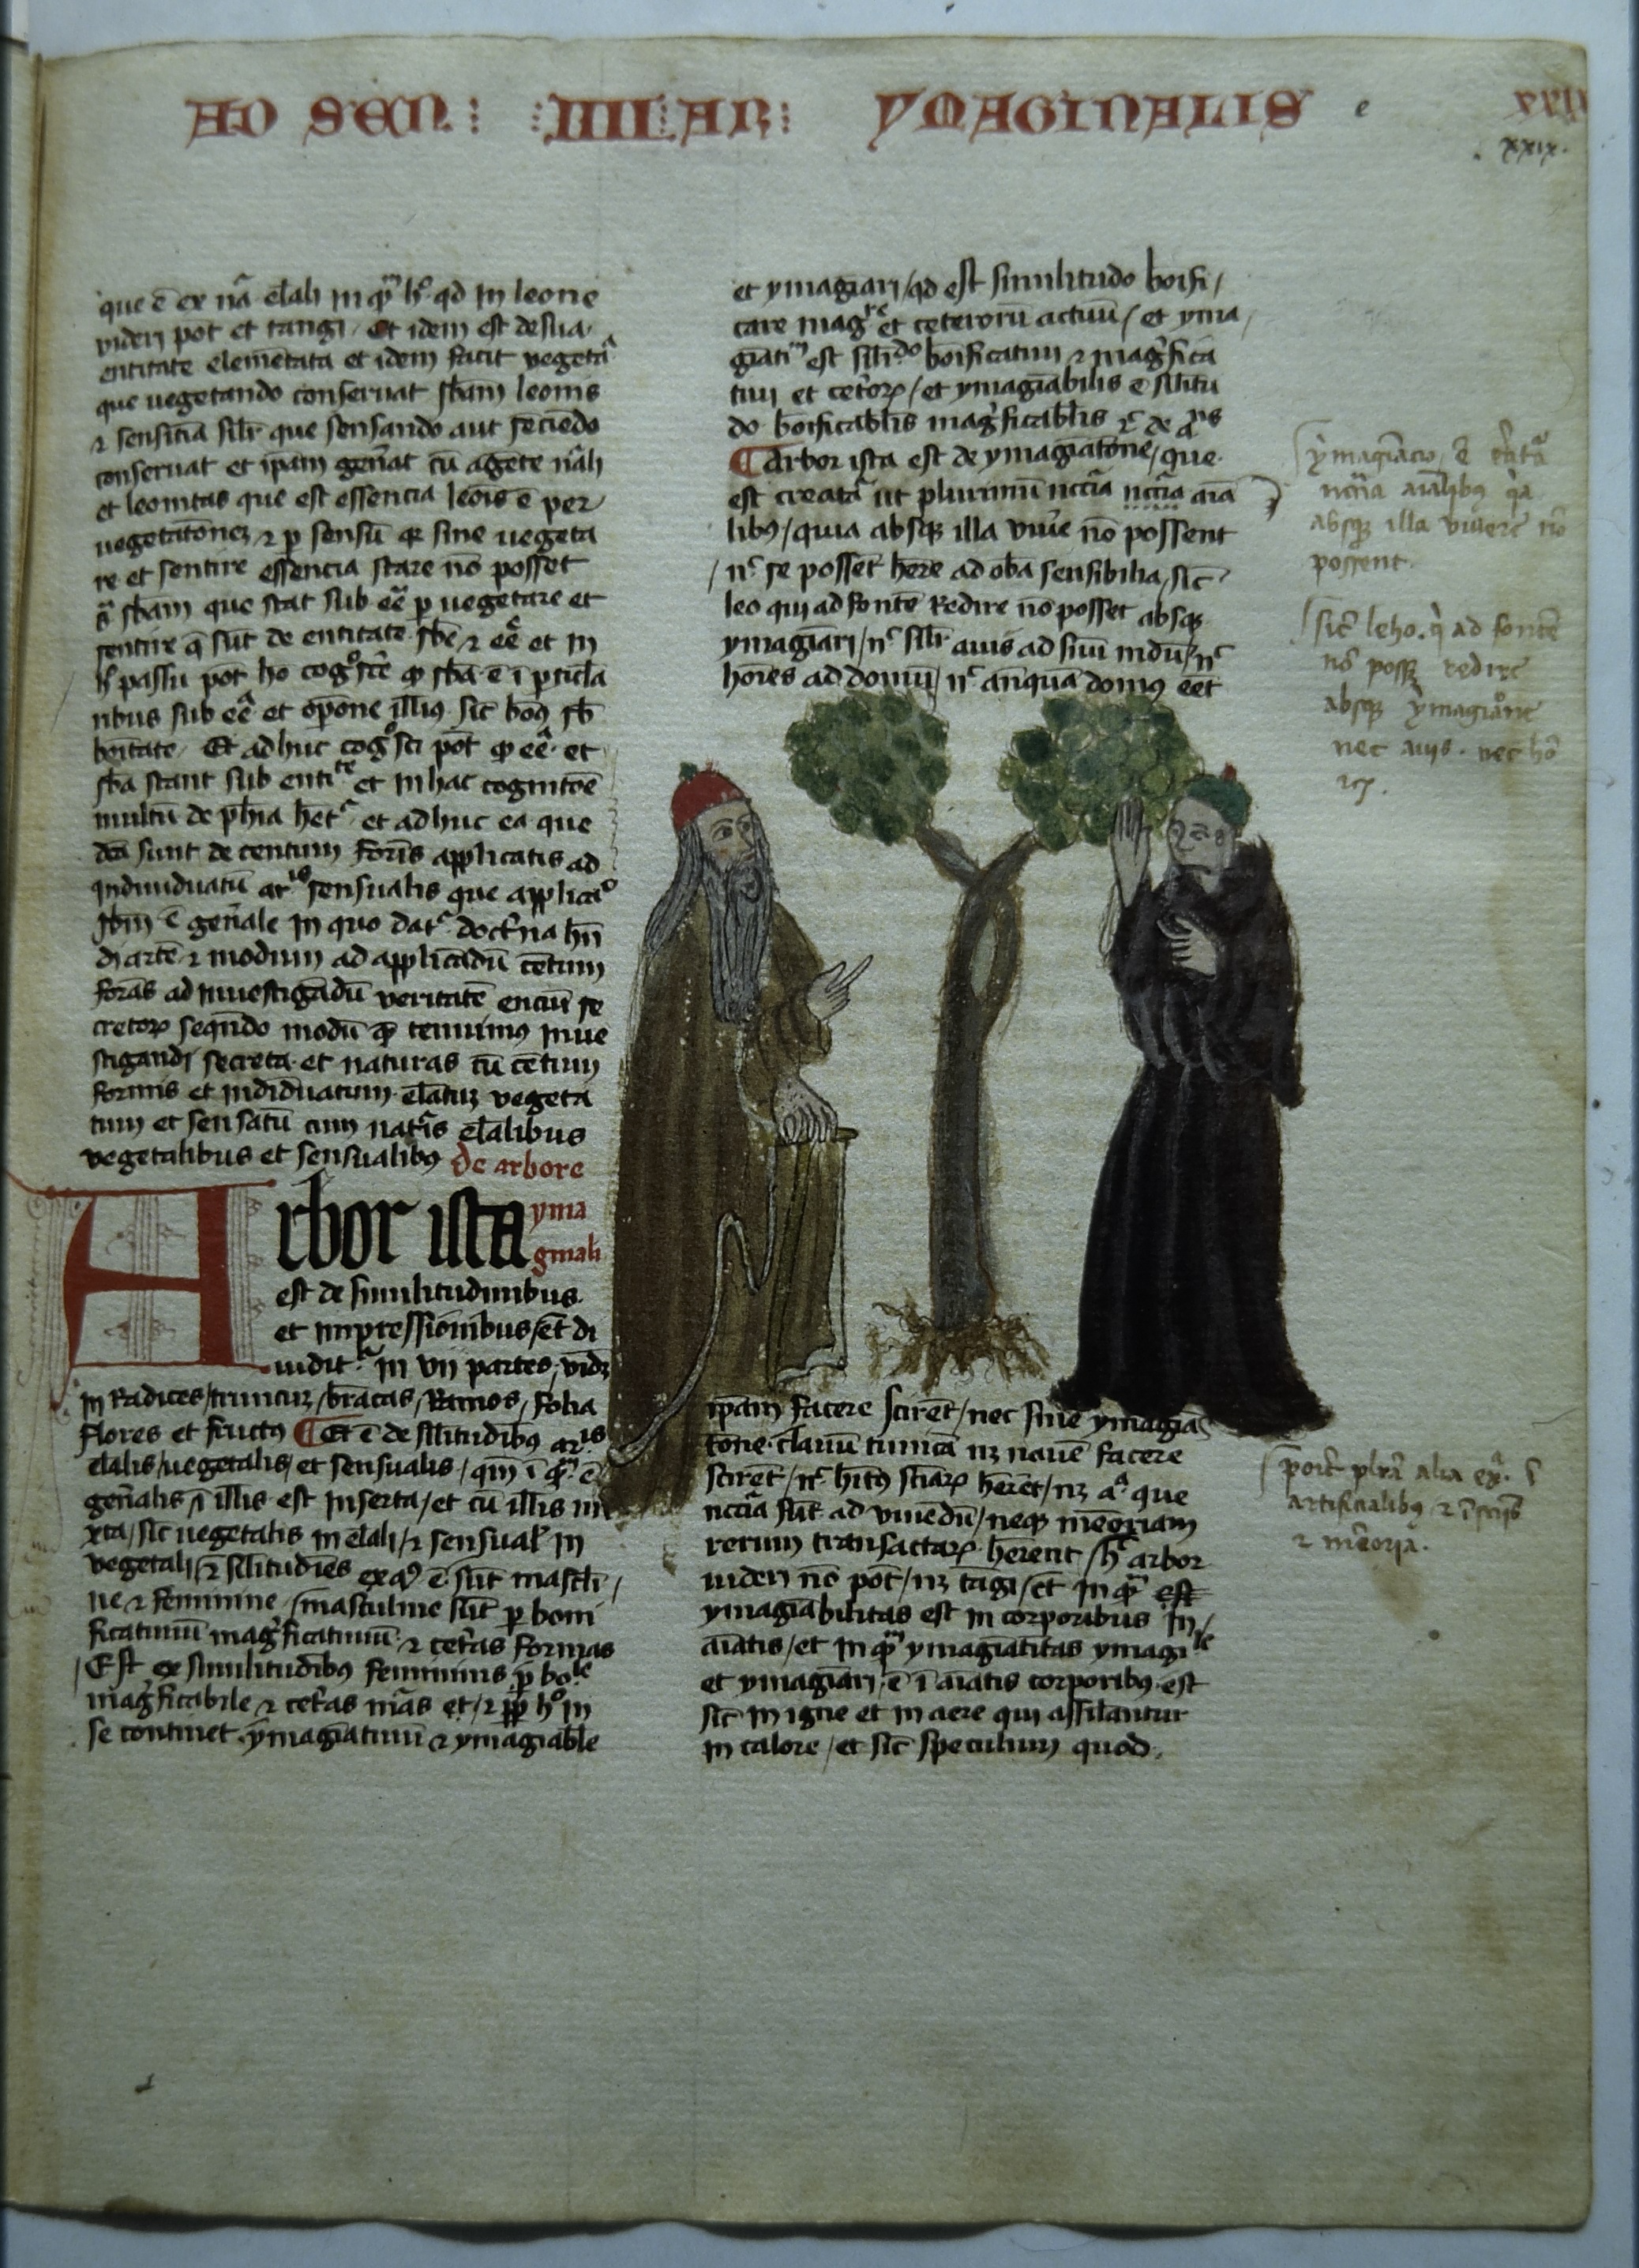 AD SEN : IIII AR : YMAGINALIS e
xxix.
que ē ex nā elali in qᵐ hº qd in leone
videri pōt et tangi / Et idem est de sua
entitate elemētata et idem facit vegetā
que uegetando conseruat sbam leonis
⁊ sensitīa silr que sensando aut seciēdo
conseruat et ipam genāt cū agēte nāli
et leonitas que est essencia leōis ē per
uegetatōnez ⁊ p sensū qr sine uegeta
re et sentire essencia stare nō posset
sbām que stat sub eē p uegetare et
sentire q sūt de entitate sbē ⁊ eē et in
passu pōt hō cogºscē sbā ē ī pticla
ribus sub eē et opōne illius sic boⁿ sb
bōitate Et adhuc cogºsci pōt eē et
sbā stant sub entiᵗᵉ et in hac cognitōe
multū de phia hētʳ et adhuc ea que
dca sunt de centum foris applicatis ad
indiuiduatū arⁱˢ sensualis que applicaº
ē genāle in quo datʳ doctʳna hn
di artē ⁊ modum ad applicādū cētum
formas ad inuestigādū veritatē enciū se
cretoꝝ seqndo modū tenuimus inue
stigandi secreta et naturas cū cētum
formis et indiuiduatum elatuz vegeta
tum et sensatū cum natʳis elalibus
vegetalibus et sensualibꝫ de arbore
Arbor ista yma
ginali
est de similitudinibus
et impressionibus / et di
uiditʳ in vii partes / videlz
in Radices / truncuz / brācas / Ramos / folia
flores et fructꝰ Et ē de silitudibꝰ arⁱˢ
elalis / uegetalis / et sensualis / qm ī
genālis ī illis est inserta / et cū illis mi
xta / sic uegetalis in elali / ⁊ sensualʳ in
vegetali / ⁊ silitudies sūt masclī
ne ⁊ feminine / masculine sūt p boni
ficatiuū magʳficatiuū ⁊ cetʳas formas
Est ex similitudibꝰ femininis p boˡᵉ
magʳficabile ⁊ cetʳas mās
se continet ymagiatiuū ⁊ ymagiable
et ymagiari / qd est similitudo boifi
care magʳᵉ et ceterorū actuū / et yma
giatiᵐ est silidº boificatiui ⁊ magʳfica
tiui et cetʳoꝝ / et ymagiabilis ē silitu
do boificablis magʳficablis
Arbor ista est de ymagiatōne / que
est creatā ut plurimū nccīa nccīa aīa
libꝰ / quia absqꝫ illa viuʳe nō possent
nᶜ se possēt hēre ad obā sensibilia / sic
leo qui ad fontē Redire nō posset absqꝫ
ymagiāri / nᶜ silr auis ad suū nidū / nᶜ
hoīes ad domū / nᶜ anqua domus eēt
ipam facere scirēt / nec sine ymagia
tōne clauū tunicā nz nauē facere
scirēt / nᶜ hitꝰ sciaꝝ hērēt / nz que
nccīa sūt ad viuēdū / neqꝫ meōriam
rerum transactaꝝ hērent / hᶜ arbor
uideri nō pōt / nz tāgi / et in qᵐ est
ymagiabilitas est in corporibus in
aīatis / et in qᵐ ymagiatiᵗas ymagiˡᵉ
et ymagiari ē ī aīatis corporibꝰ est
sic in igne et in aere qui assilantur
in calore / et sic speculum quod
ymagiacio ē
nccīa aīalibꝰ qa
absqꝫ illa viuere nō
possent.
sic leho q ad fontē
nō possz redire
absqꝫ ymagiānē
nec auis. nec hō
⁊c.
alia ex
artificialibꝰ
⁊ mēoria.